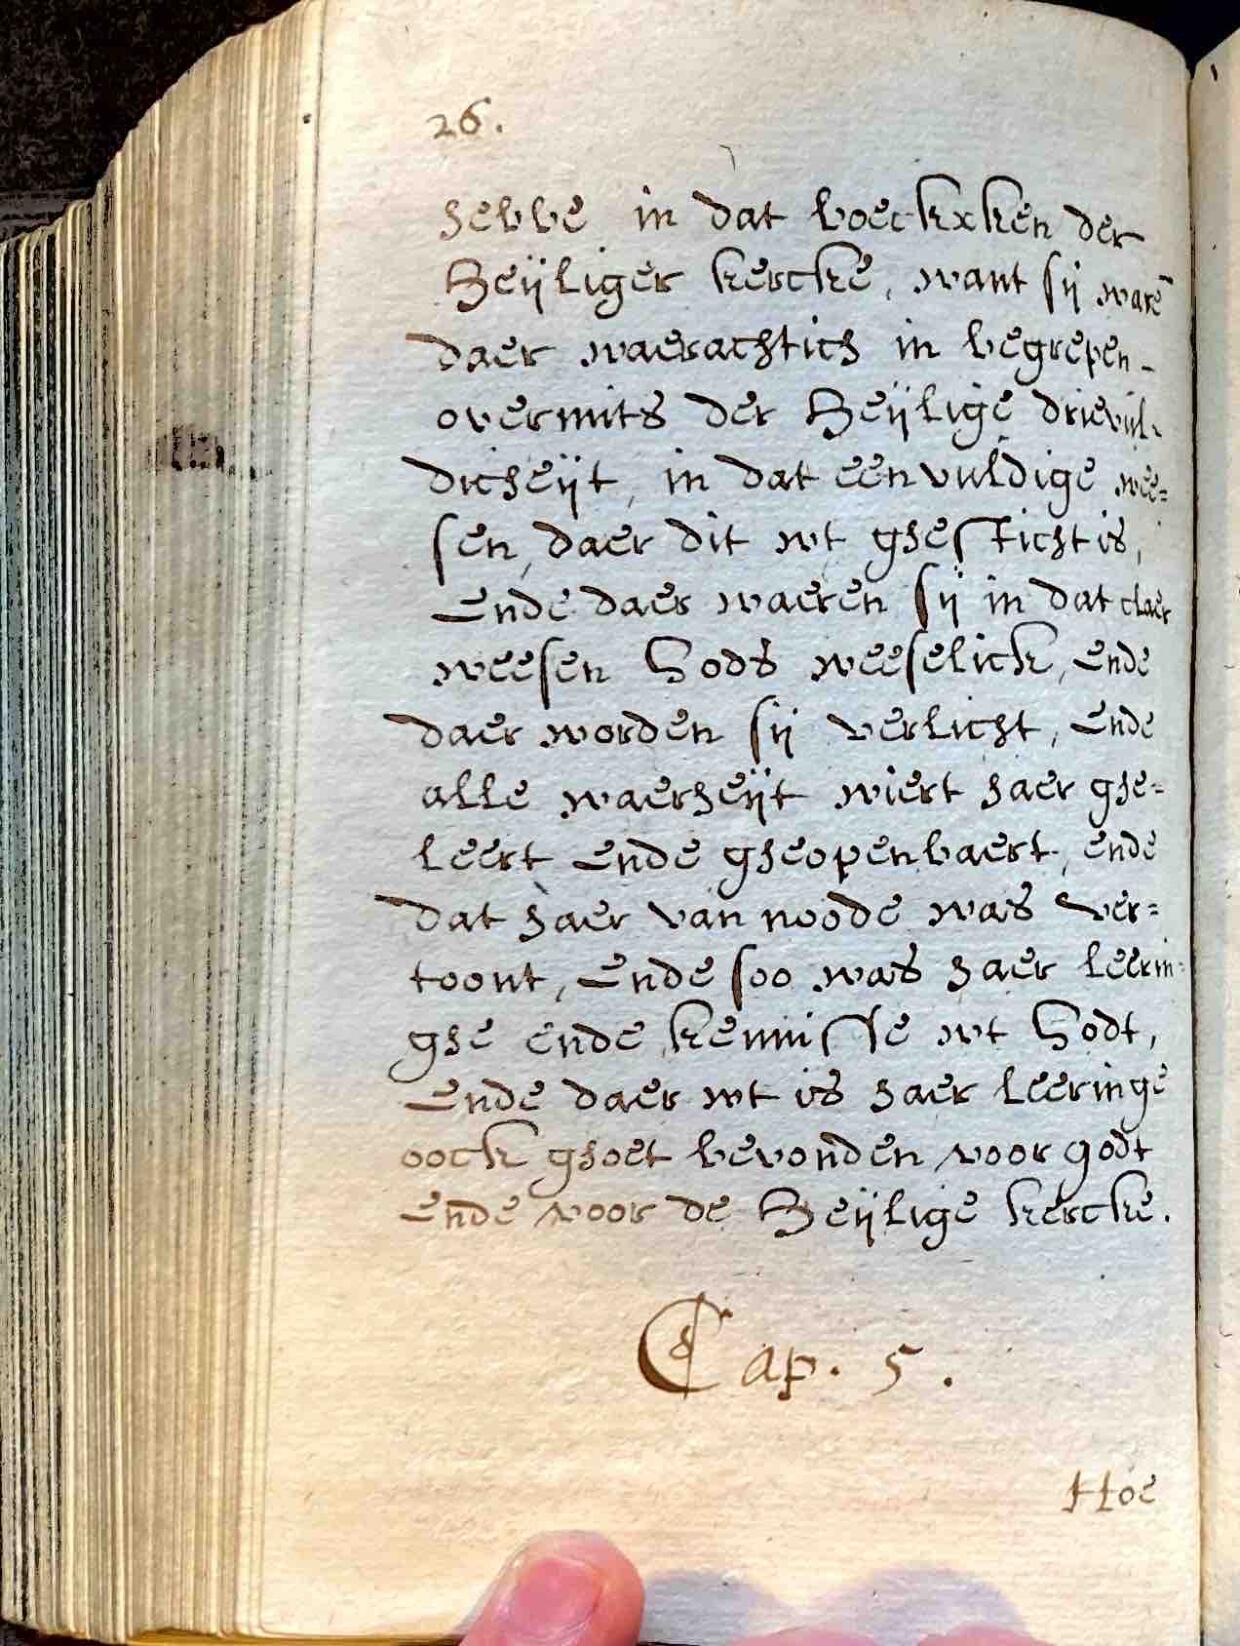 26.
hebbe in dat boeckxken der
Heijliger kercke, want sij warē
daer waerachtich in begrepen-
overmits der Heijlige drievul-
dicheijt, in dat eenvuldige wee=
sen, daer dit wt ghesticht is,
Ende daer waeren sij in dat claer
weesen Gods weeselick, Ende
daer worden sij verlicht, Ende
alle waerheijt wiert haer ghe=
leert Ende gheopenbaert, ende
dat haer van noode was ver=
toont, Ende soo was haer leerin=
ghe ende kennisse wt Godt,
Ende daer wt is haer leeringe
oock ghoet bevonden voor godt
Ende voor de Heijlige kercke.
Cap. 5.
Hoe